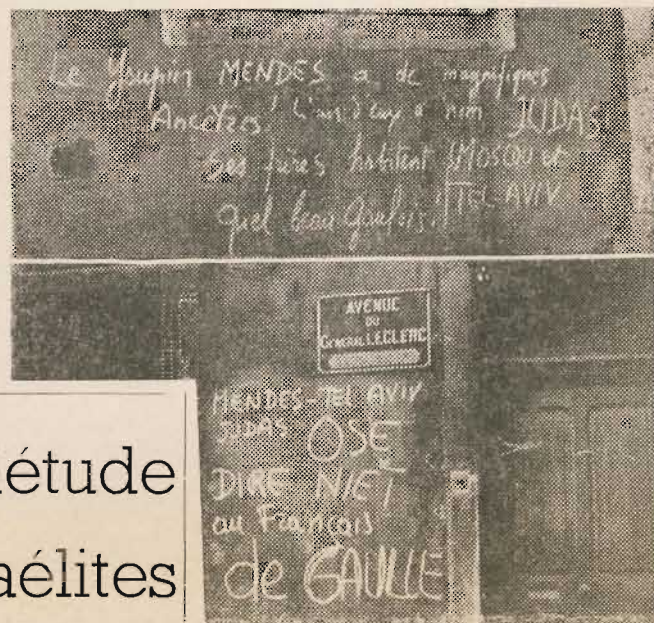 Le Youpin MENDES a de magnifiques
Ancêtres! L'un d'eux a nom JUDAS!
Ses frères habitent MOSCOU et
TEL AVIV
quel beau Gaulois!
AVENUE
DU
GENERAL LECLERC
MENDES-TEL AVIV
JUDAS OSE
DIRE NIET
au Français
de GAULLE
étude
aélites